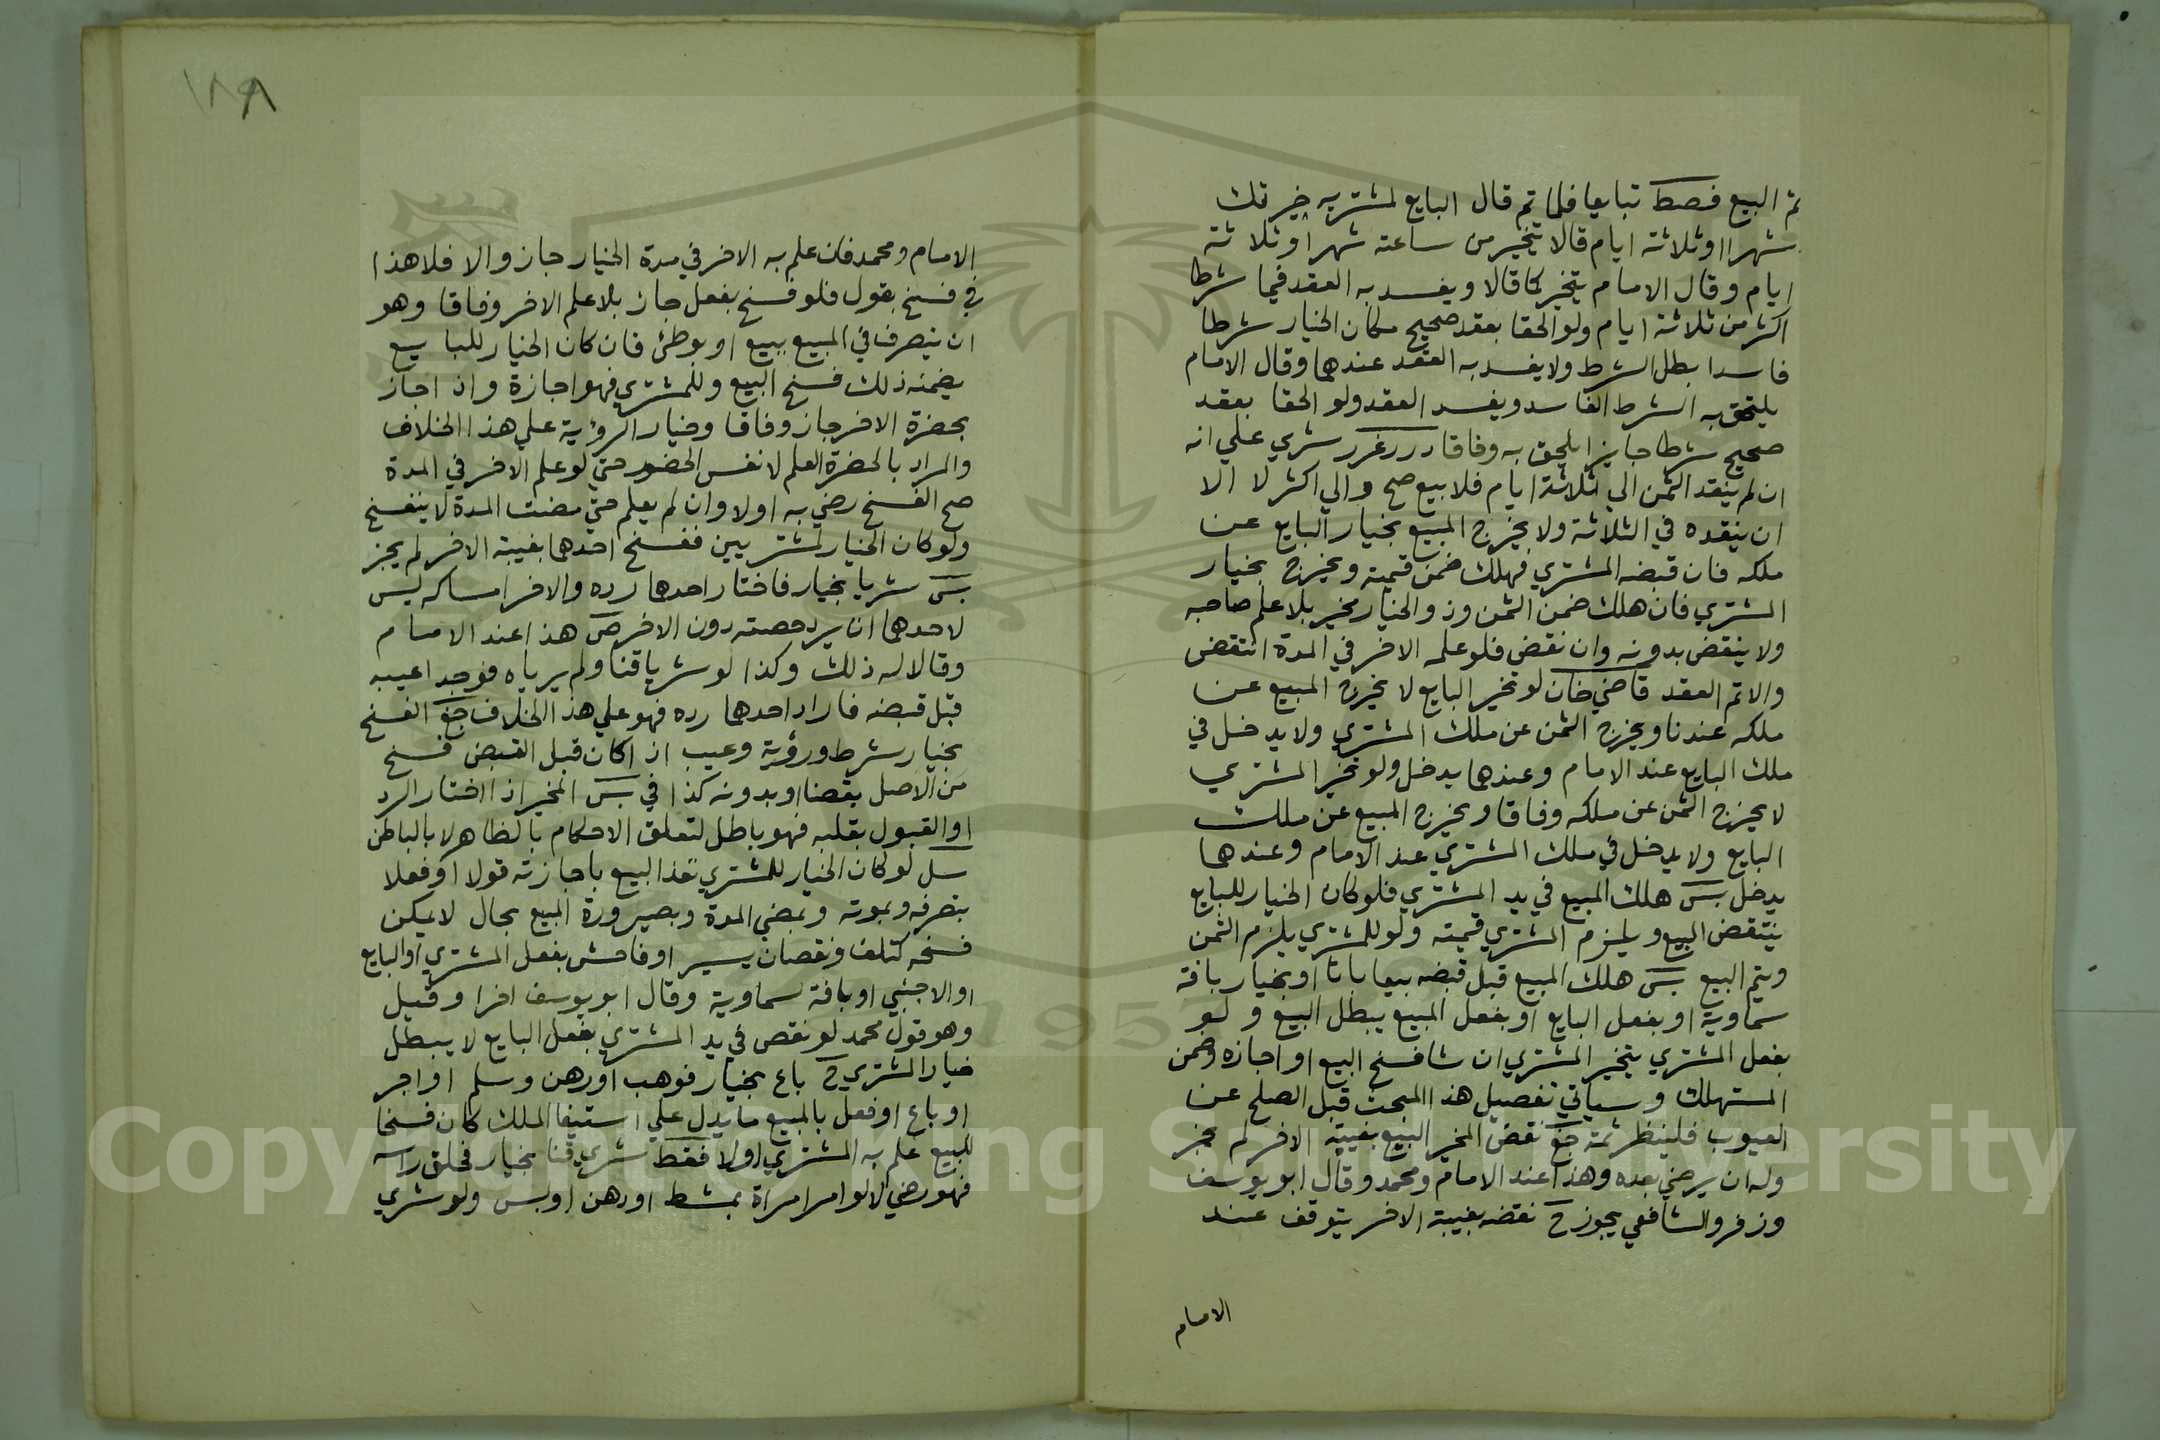 تم البيع فصط تبايعا فلما تم قال البايع لمشتريه خيرتك
شهرا او ثلاثة ايام قالا يتخير من ساعته شهرا وثلاثة
ايام وقال الامام يتخير كما قالا ويفسد به العقد فيما شرطا
اكثر من ثلاثة ايام ولو الحقا بعقد صحيح مكان الخيار شرطا
فاسدا بطل الشرط ولا يفسد به العقد عندهما وقال الامام
يلتحق به الشرط الفاسد ويفسد العقد ولو الحقا بعقد
صحيح شرطا جايزا يلحق به وفاقا درر غرر شري علي انه
ان لم ينقد الثمن الي ثلاثة ايام فلا بيع صح والي اكثر لا الا
ان ينقده في الثلاثة ولا يخرج المبيع بخيار البايع عن
ملكه فان قبضه المشتري فهلك ضمن قيمته ويخرج بخيار
المشتري فان هلك ضمن الثمن وذو الخيار مخير بلا علم صاحبه
ولا ينقض بدونه وان نقض فلو علمه الاخر في المدة انتقض
والا تم العقد قاضي خان لو تخير البايع لا يخرج المبيع عن
ملكه عندنا ويخرج الثمن عن ملك المشتري ولا يدخل في
ملك البايع عند الامام وعندهما يدخل ولو تخير المشتري
لا يخرج الثمن عن ملكه وفاقا ويخرج المبيع عن ملك
البايع ولا يدخل في ملك المشتري عند الامام وعندهما
يدخل بس هلك المبيع في يد المشتري فلو كان الخيار للبايع
ينتقض البيع ويلزم المشتري قيمته ولو للمشتري يلزم الثمن
ويتم البيع بس هلك المبيع قبل قبضه بيعا باتا او بخيار بافة
سماوية او بفعل البايع او بفعل المبيع يبطل البيع ولو
بفعل المشتري يتخير المشتري ان شا فسخ البيع او اجازه وضمن
المستهلك وسياتي تفصيل هذا المبحث قبل الصلح عن
العيوب فلينظر ثمة جع نقض المخير البيع بغيبة الاخر لم يجز
وله ان يرضي بعده وهذا عند الامام ومحمد وقال ابو يوسف
وزفر والشافعي يجوز ح نقضه بغيبة الاخر يتوقف عند
الامام
١٨٩
الامام ومحمد فان علم به الاخر في مدة الخيار جاز والا فلا هذا
في فسخ بقول فلو فسخ بفعل جاز بلا علم الاخر وفاقا وهو
ان يتصرف في المبيع ببيع او بوطئ فان كان الخيار للبايع
يضمنه ذلك فسخ البيع وللمشتري فهو اجازة واذ اجاز
بحضرة الاخر جاز وفاقا وخيار الرؤية علي هذا الخلاف
والمراد بالحضرة العلم لا نفس الحضور حتي لو علم الاخر في المدة
صح الفسخ رضي به اولا وان لم يعلم حتي مضت المدة لا ينفسخ
ولو كان الخيار لمشتريين ففسخ احدهما بغيبة الاخر لم يجز
بس شريا بخيار فاختار احدهما رده والاخر امساكه ليس
لاحدهما ان يرد حصته دون الاخر ص هذا عند الامام
وقالا له ذلك وكذا لو شريا قنا ولم يرياه فوجدا عيبه
قبل قبضه فاراد احدهما رده فهو علي هذا الخلاف جع الفسخ
بخيار شرط ورؤية وعيب اذا كان قبل القبض فسخ
من الاصل بقضا او بدونه كذا في بس المخير اذا اختار الرد
او القبول بقلبه فهو باطل لتعلق الاحكام بالظاهر لا بالباطن
سل لو كان الخيار للمشتري نفذ البيع باجازته قولا او فعلا
بتصرفه وبموته وبمضي المدة وبصيرورة المبيع بحال لا يمكن
فسخه كتلف ونقصان يسير او فاحش بفعل المشتري او البايع
او الاجنبي او بافة سماوية وقال ابو يوسف اخرا وقيل
وهو قول محمد لو نقص في يد المشتري بفعل البايع لا يبطل
خيار المشتري ح باع بخيار فوهب او رهن وسلم او اجر
او باع او فعل بالمبيع ما يدل علي استيفا الملك كان فسخا
للبيع علم به المشتري اولا فقط شري قنا بخيار فحلق راسه
فهو رضي لا لو امر امراة بمشط او دهن او بس ولو شري